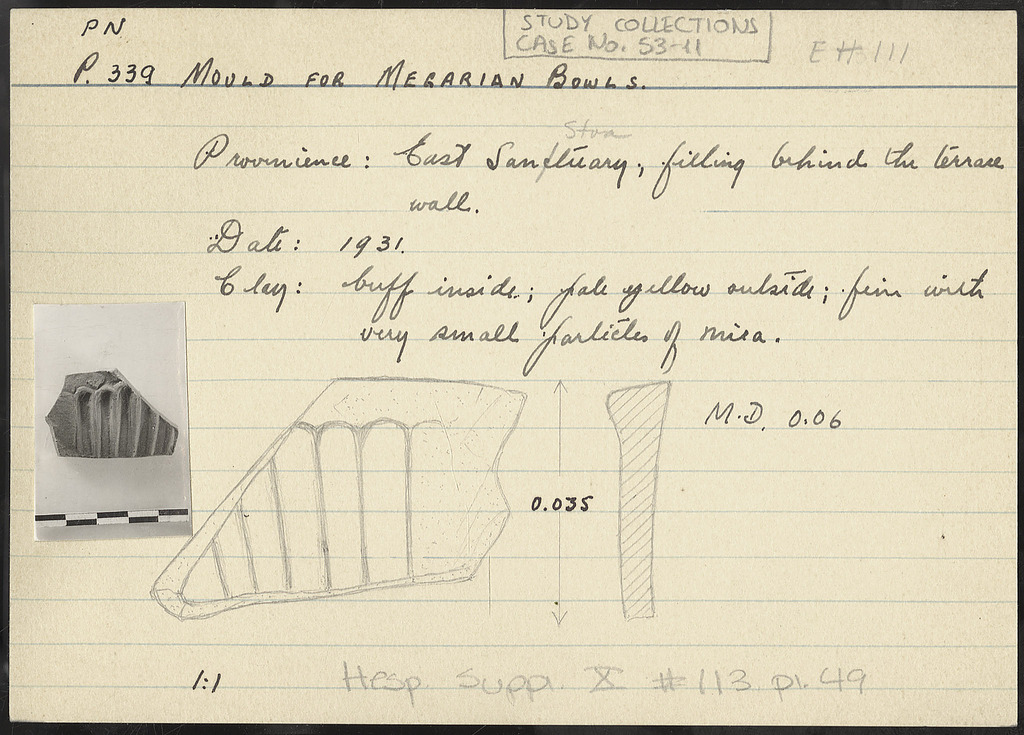 PN
STUDY COLLECTIONS
CASE No. 53-11
E H 111
P. 339 MOULD FOR MEGARIAN BOWLS.
Stoa
Provenience: East Sanctuary; filling behind the terrace
wall.
Date: 1931.
Clay: buff inside; pale yellow outside; fine with
very small particles of mica.
M.D. 0.06
0.035
1:1
Hesp. Suppl. X #113 pl. 49